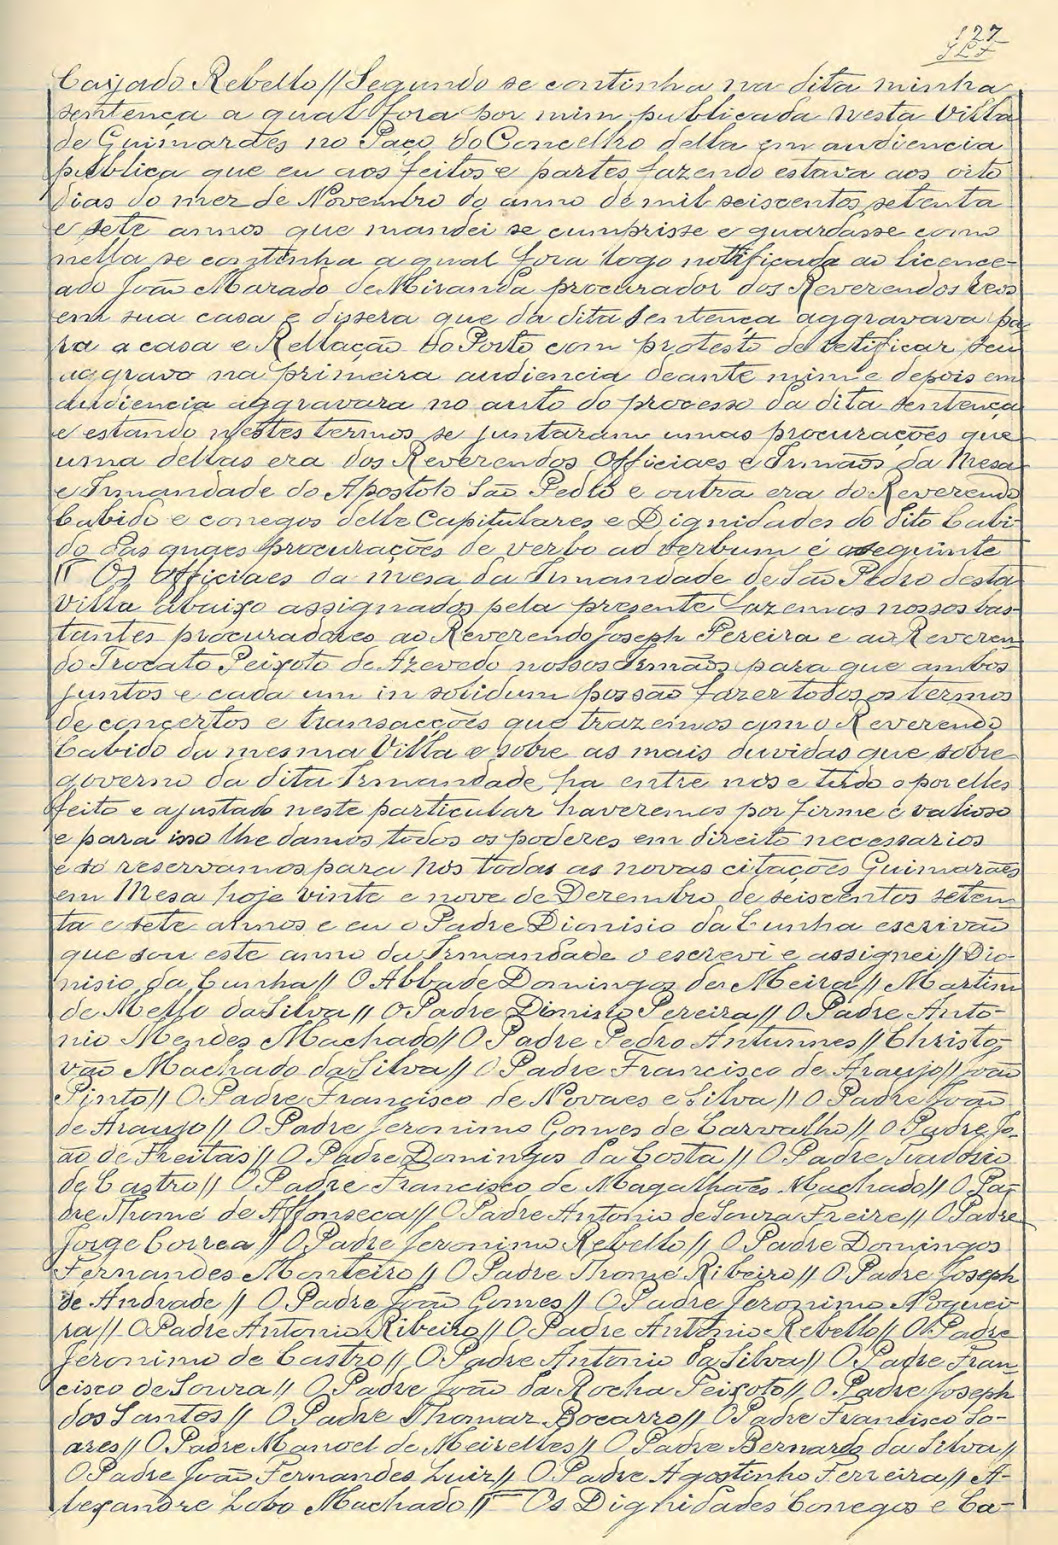 127
Caijado Rebello // Segundo se continha na dita minha
sentença a qual fora por mim publicada nesta Villa
de Guimarães no Paço do Concelho della em audiencia
publica que eu aos feitos e partes fazendo estava aos oito
dias do mez de Novembro do anno de mil seiscentos setenta
e sete annos que mandei se cumprisse e guardasse como
nella se continha a qual fora logo notificada ao licence-
ado João Marado de Miranda procurador dos Reverendos Reos
em sua casa e dissera que da dita sentença aggravava pa-
ra a casa e Rellação do Porto com protesto de retificar seu
aggravo na primeira audiencia deante mim e depois em
audiencia aggravara no auto do processo da dita sentença
e estando nestes termos se juntaram umas procurações que
uma dellas era dos Reverendos Officiaes e Irmãos da Mesa
e Irmandade do Apostolo São Pedro e outra era do Reverendo
Cabido e conegos delle Capitulares e Dignidades do dito Cabi-
do das quaes procurações de verbo ad verbum é o seguinte
// Os officiaes da mesa da Irmandade de São Pedro desta
Villa abaixo assignados pela presente fazemos nossos bas-
tantes procuradores ao Reverendo Joseph Pereira e ao Reveren-
do Trocato Peixoto de Azevedo nossos Irmãos para que ambos
juntos e cada um in solidum possão fazer todos os termos
de concertos e transacções que trazemos com o Reverendo
Cabido da mesma Villa e sobre as mais duvidas que sobre
governo da dita Irmandade ha entre nós e tudo o por elles
feito e ajustado neste particular haveremos por firme e valioso
e para isso lhe damos todos os poderes em direito necessarios
e só reservamos para nós todas as novas citações Guimarães
em Mesa hoje vinte e nove de Dezembro de seiscentos seten-
ta e sete annos e eu o Padre Dionisio da Cunha escrivão
que sou este anno da Irmandade o escrevi e assignei // Dio-
nisio da Cunha // O Abbade Domingos de Meira // Martim
de Mello da Silva // O Padre Dionisio Pereira // O Padre Anto-
nio Mendes Machado // O Padre Pedro Antunnes // Christo-
vão Machado da Silva // O Padre Francisco de Araujo // João
Pinto // O Padre Francisco de Novaes e Silva // O Padre João
de Araujo // O Padre Jeronimo Gomes de Carvalho // O Padre Jo-
ão de Freitas // O Padre Domingos da Costa // O Padre
de Castro // O Padre Francisco de Magalhães Machado // O Pa-
dre Thomé de Affonseca // O Padre Antonio de Souza Freire // O Padre
Jorge Correa // O Padre Jeronimo Rebello // O Padre Domingos
Fernandes Monteiro // O Padre Thomé Ribeiro // O Padre Joseph
de Andrade // O Padre João Gomes // O Padre Jeronimo Noguei-
ra // O Padre Antonio Ribeiro // O Padre Antonio Rebello // O Padre
Jeronimo de Castro // O Padre Antonio da Silva // O Padre Fran-
cisco de Souza // O Padre João da Rocha Peixoto // O Padre Joseph
dos Santos // O Padre Thomaz Bocarro // O Padre Francisco So-
ares // O Padre Manoel de Meirelles // O Padre Bernardo da Silva //
O Padre João Fernandes Luiz // O Padre Agostinho Ferreira // A-
lexandre Lobo Machado // Os Dignidades Conegos e Ca-